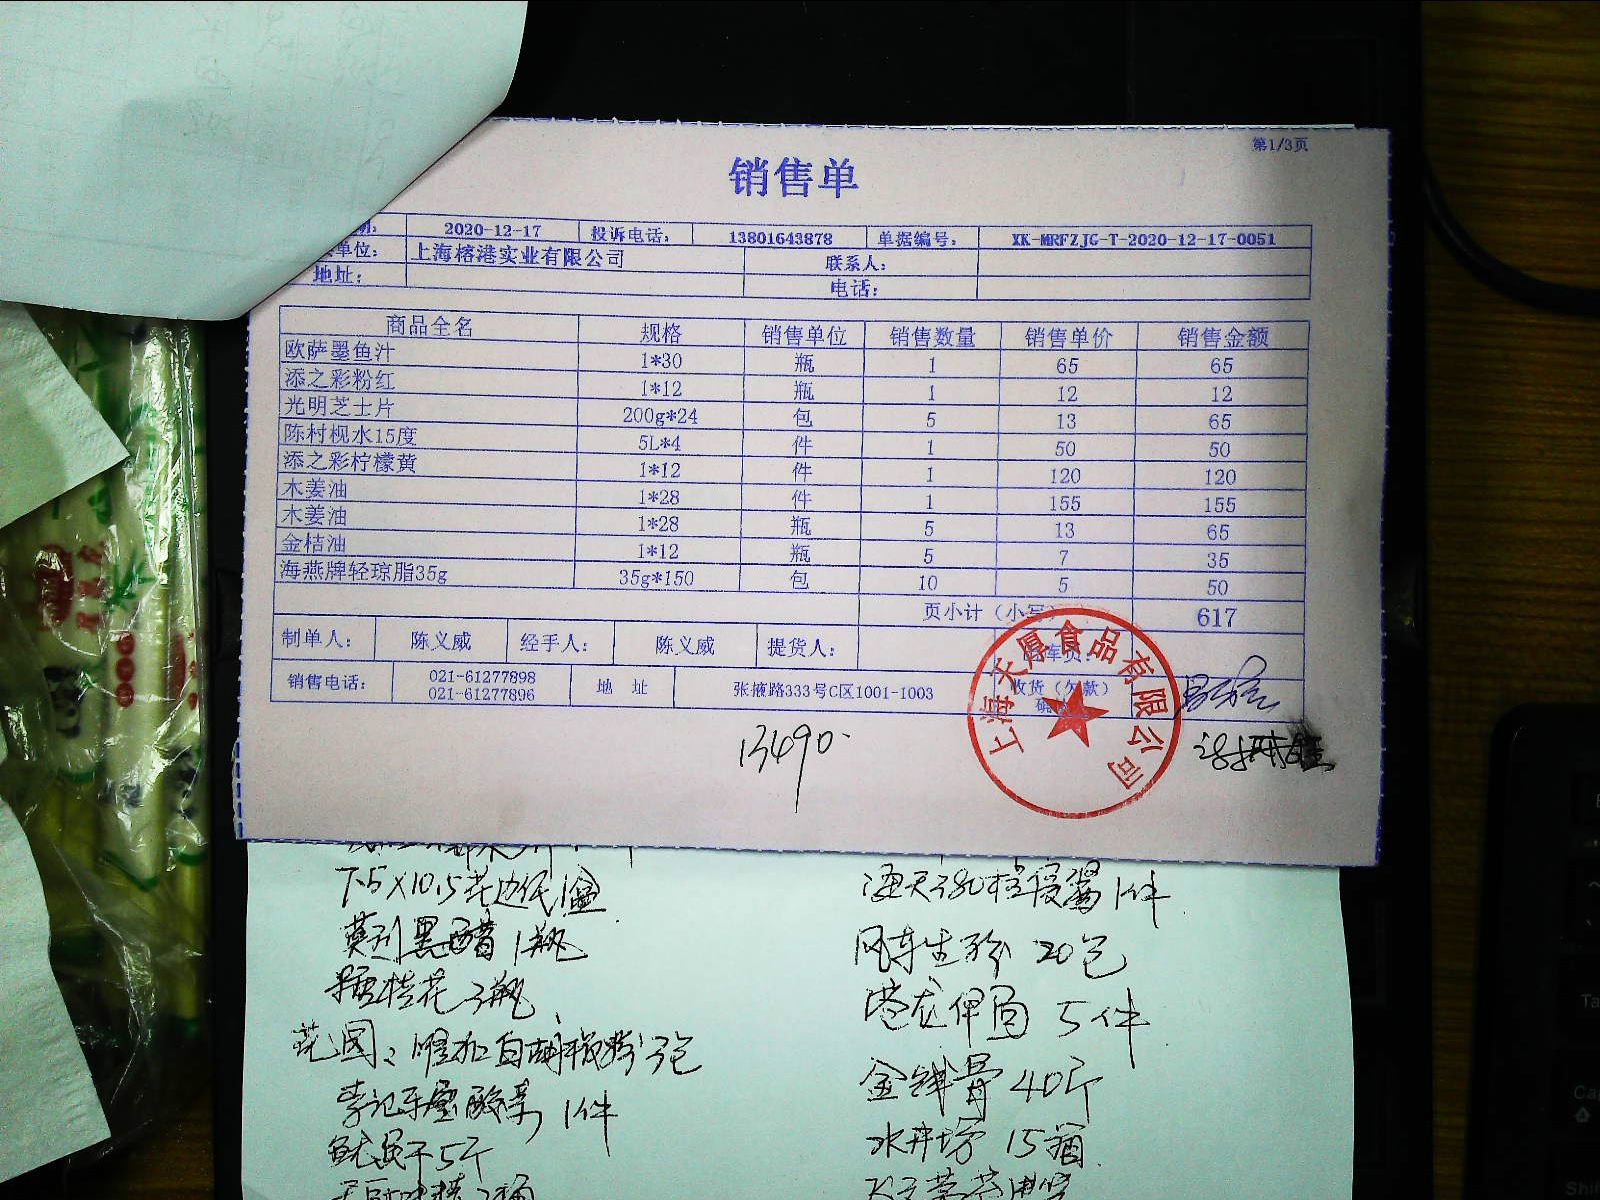 第1/3页
销售单
2020-12-17 投诉电话: 13801643878 单据编号: XK-MRFZJG-T-2020-12-17-0051
单位: 上海榕港实业有限公司 联系人:
地址: 电话:
商品全名 规格 销售单位 销售数量 销售单价 销售金额
欧萨墨鱼汁 1*30 瓶 1 65 65
添之彩粉红 1*12 瓶 1 12 12
光明芝士片 200g*24 包 5 13 65
陈村枧水15度 5L*4 件 1 50 50
添之彩柠檬黄 1*12 件 1 120 120
木姜油 1*28 件 1 155 155
木姜油 1*28 瓶 5 13 65
金桔油 1*12 瓶 5 7 35
海燕牌轻琼脂35g 35g*150 包 10 5 50
页小计（小写） 617
制单人: 陈义威 经手人: 陈义威 提货人:
销售电话: 021-61277898 021-61277896 地 址 张掖路333号C区1001-1003 收货（欠款）
上海天厚食品有限公司
13490
花边纸1盒
黑醋1瓶
糖桂花3瓶
白胡椒粉3包
1件
鱿鱼干5斤
1件
风车生粉 20包
5件
金钱骨40斤
水井坊 15